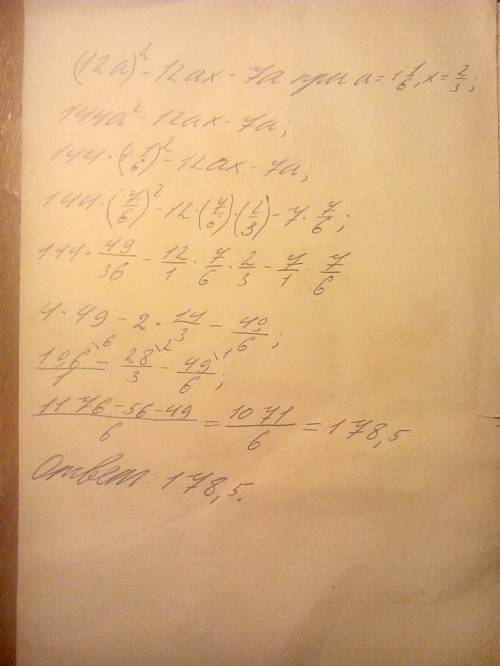 (12a)² - 12ax - 7a при a = 1 1/6, x = 2/3;
144a² - 12ax - 7a;
144 · (1 1/6)² - 12ax - 7a;
144 · (7/6)² - 12 · (7/6) · (2/3) - 7 · 7/6;
144 · 49/36 - 12/1 · 7/6 · 2/3 - 7/1 · 7/6
4 · 49 - 2 · 14/3 - 49/6;
196/1 \6 - 28/3 \2 - 49/6 \1;
(1176 - 56 - 49)/6 = 1071/6 = 178,5.
Ответ: 178,5.